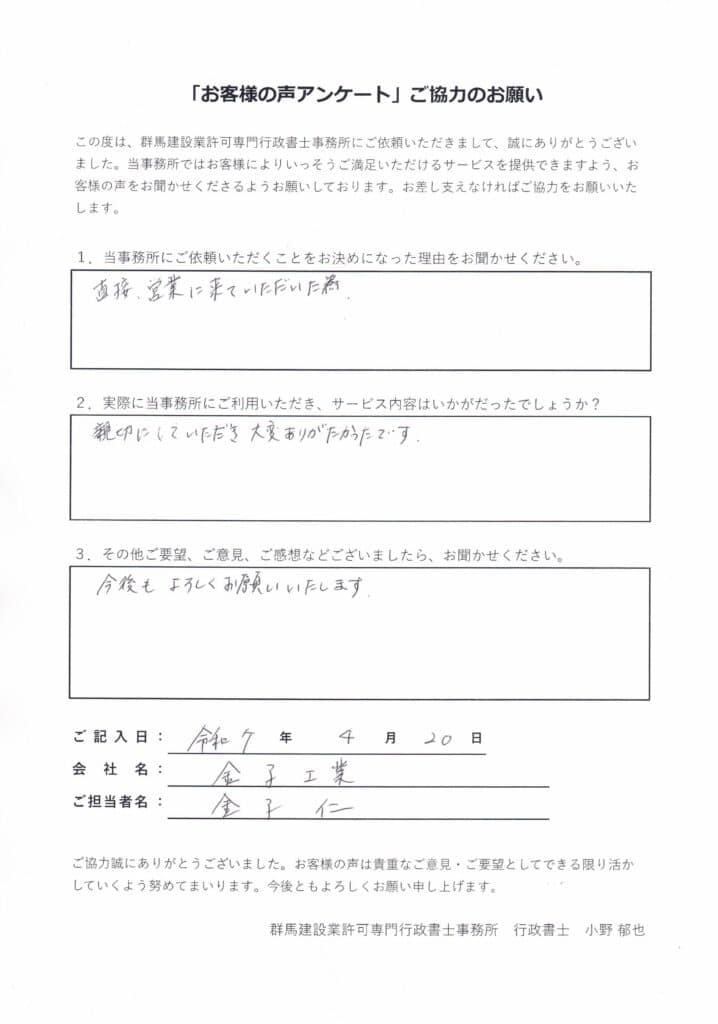 「お客様の声アンケート」ご協力のお願い
この度は、群馬建設業許可専門行政書士事務所にご依頼いただきまして、誠にありがとうござい
ました。当事務所ではお客様によりいっそうご満足いただけるサービスを提供できますよう、お
客様の声をお聞かせくださるようお願いしております。お差し支えなければご協力をお願いいた
します。
1．当事務所にご依頼いただくことをお決めになった理由をお聞かせください。
直接、営業に来ていただいた為.
2．実際に当事務所にご利用いただき、サービス内容はいかがだったでしょうか？
親切にしていただき 大変ありがたかったです.
3．その他ご要望、ご意見、ご感想などございましたら、お聞かせください。
今後も よろしくお願いいたします.
ご記入日： 令和7 年 4 月 20 日
会社名： 金子工業
ご担当者名： 金子 仁
ご協力誠にありがとうございました。お客様の声は貴重なご意見・ご要望としてできる限り活か
していくよう努めてまいります。今後ともよろしくお願い申し上げます。
群馬建設業許可専門行政書士事務所 行政書士 小野 郁也